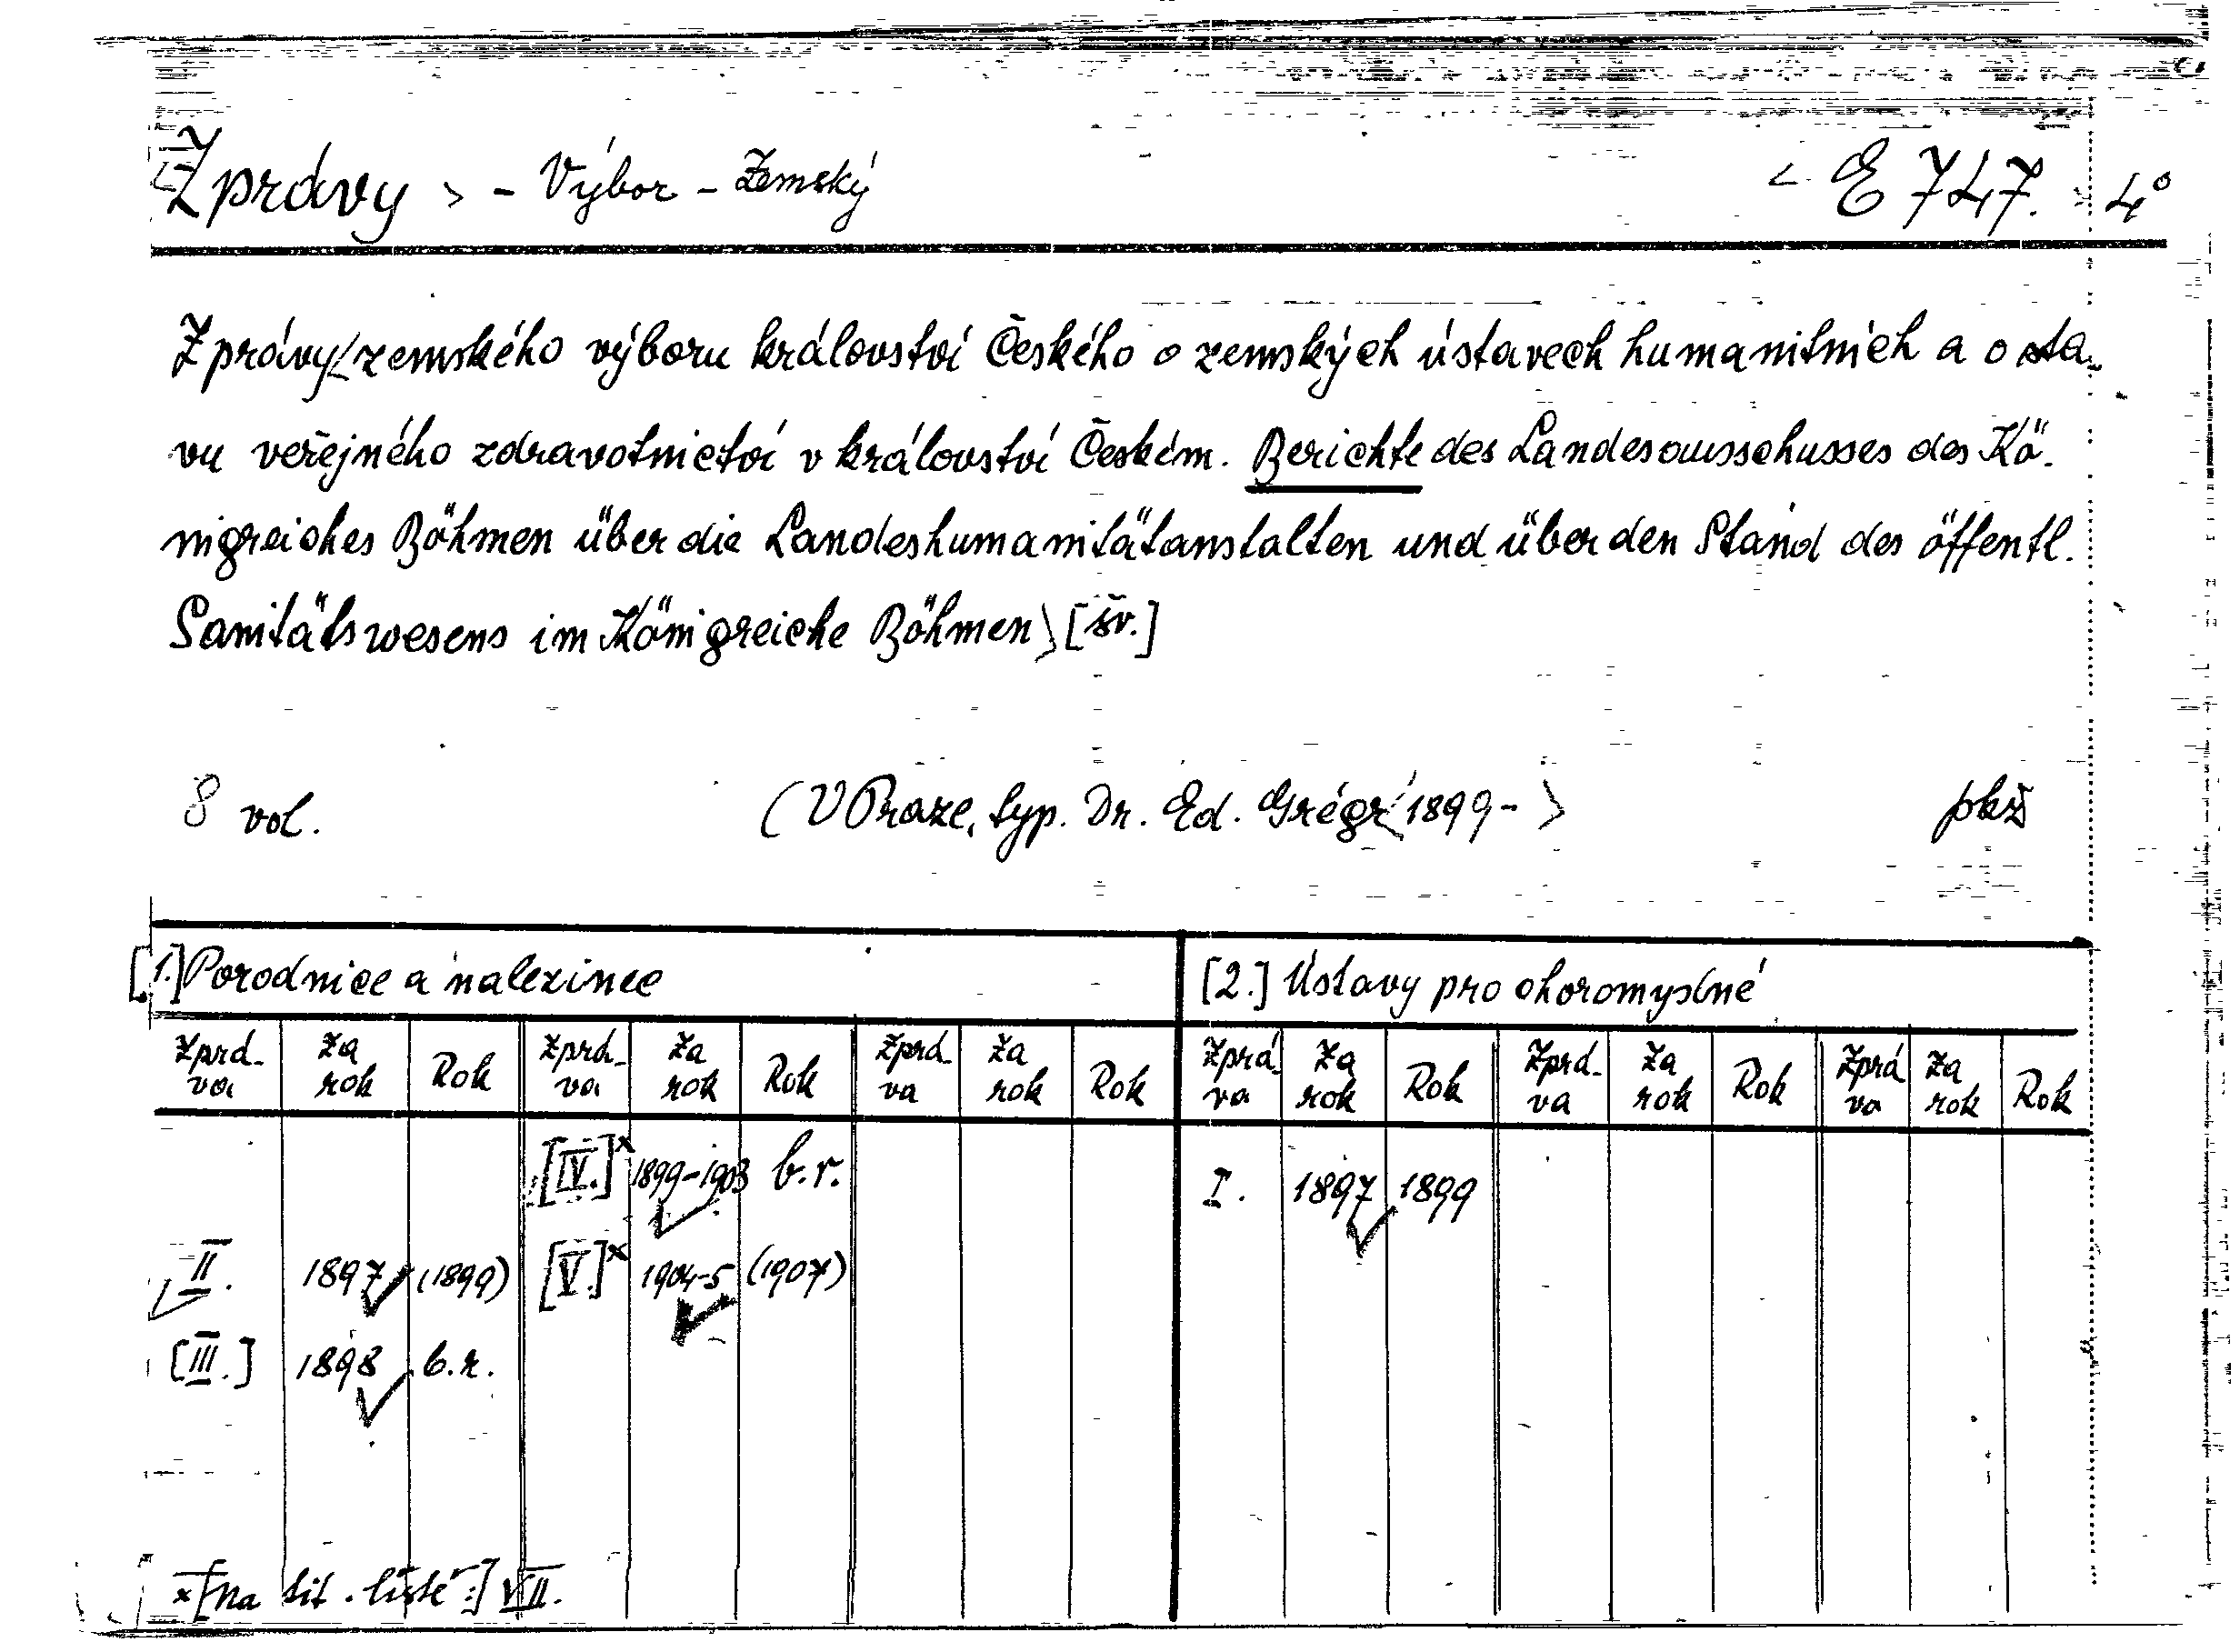 Zprávy > - Výbor - Zemský < E 747. 4°
Zprávy/zemského výboru království Českého o zemských ústavech humanitních a o sta-
vu veřejného zdravotnictví v království Českém. Berichte des Landesausschusses des Kö-
nigreiches Böhmen über die Landeshumanitätanstalten und über den Stand des öffentl.
Sanitätswesens im Königreiche Böhmen> [šv.]
8 vol. (V Praze, typ. Dr. Ed. Grégr 1899- > pkž
[1.] Porodnice a nalezinec [2.] Ústavy pro choromyslné
Zprá-va Za rok Rok Zprá-va Za rok Rok Zprá-va Za rok Rok Zprá-va Za rok Rok Zprá-va Za rok Rok Zprá-va Za rok Rok
[IV.]x 1899-1903 b.r. I. 1897 1899
II. 1897 (1899) [V.]x 1904-5 (1907)
[III.] 1898 b.r.
x [Na tit. listě:] VII.